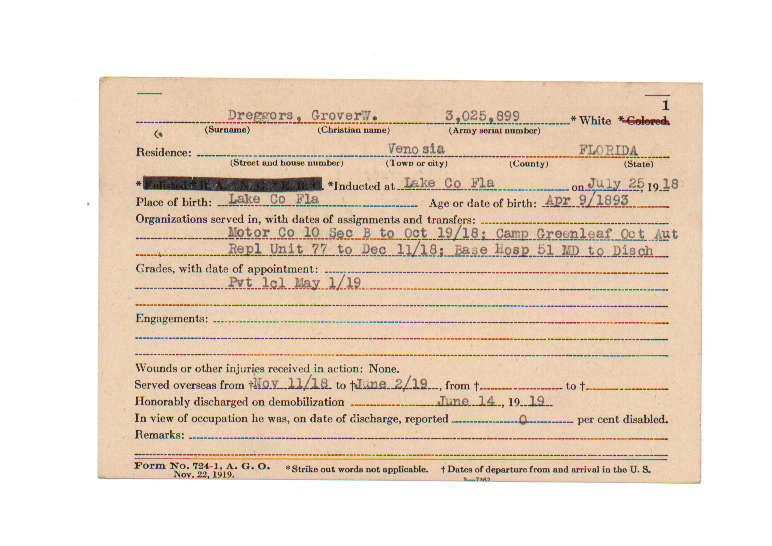 1
Dreggors, GroverW. 3,025,899 * White * Colored.
(Surname) (Christian name) (Army serial number)
Residence: Venosia FLORIDA
(Street and house number) (Town or city) (County) (State)
* Enlisted * R. A. * N. G. * E. R. C. *Inducted at Lake Co Fla on July 25, 19 18
Place of birth: Lake Co Fla Age or date of birth: Apr 9/1893
Organizations served in, with dates of assignments and transfers:
Motor Co 10 Sec B to Oct 19/18; Camp Greenleaf Oct Aut
Repl Unit 77 to Dec 11/18; Base Hosp 51 MD to Disch
Grades, with date of appointment:
Pvt 1cl May 1/19
Engagements:
Wounds or other injuries received in action: None.
Served overseas from †Nov 11/18 to †June 2/19, from † to †
Honorably discharged on demobilization June 14, 19 19
In view of occupation he was, on date of discharge, reported 0 per cent disabled.
Remarks:
Form No. 724-1, A. G. O. *Strike out words not applicable. † Dates of departure from and arrival in the U. S.
Nov. 22, 1919.